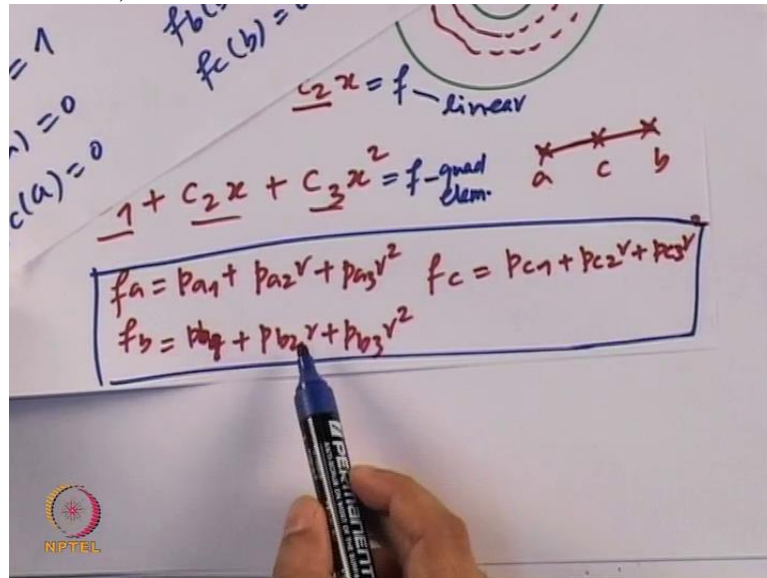 = 1
fb(
fc(b) = 0
) = 0
c(a) = 0
c2x = f — linear
1 + c2x + c3x² = f - quad elem.
a c b
fa = pa1 + pa2r + pa3r² fc = pc1 + pc2r + pc3r²
fb = pb1 + pb2r + pb3r²
PERMANENT
NPTEL